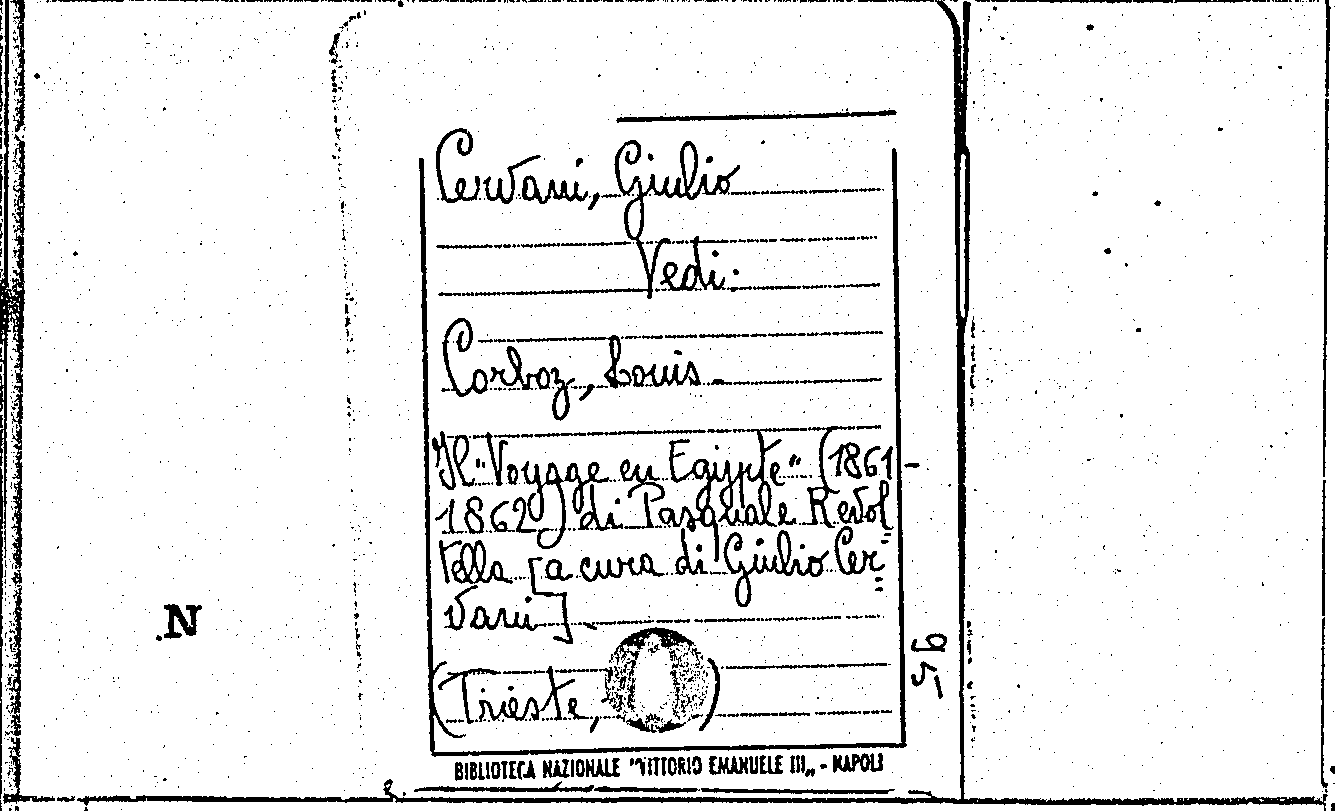 Cervani, Giulio
Vedi:
Corboz, Louis -
Il "Voyage en Egypte" (1861-
1862) di Pasquale Revol
tella [a cura di Giulio Cer"
vani] -
(Trieste, )
N
BIBLIOTECA NAZIONALE "VITTORIO EMANUELE III„ - NAPOLI